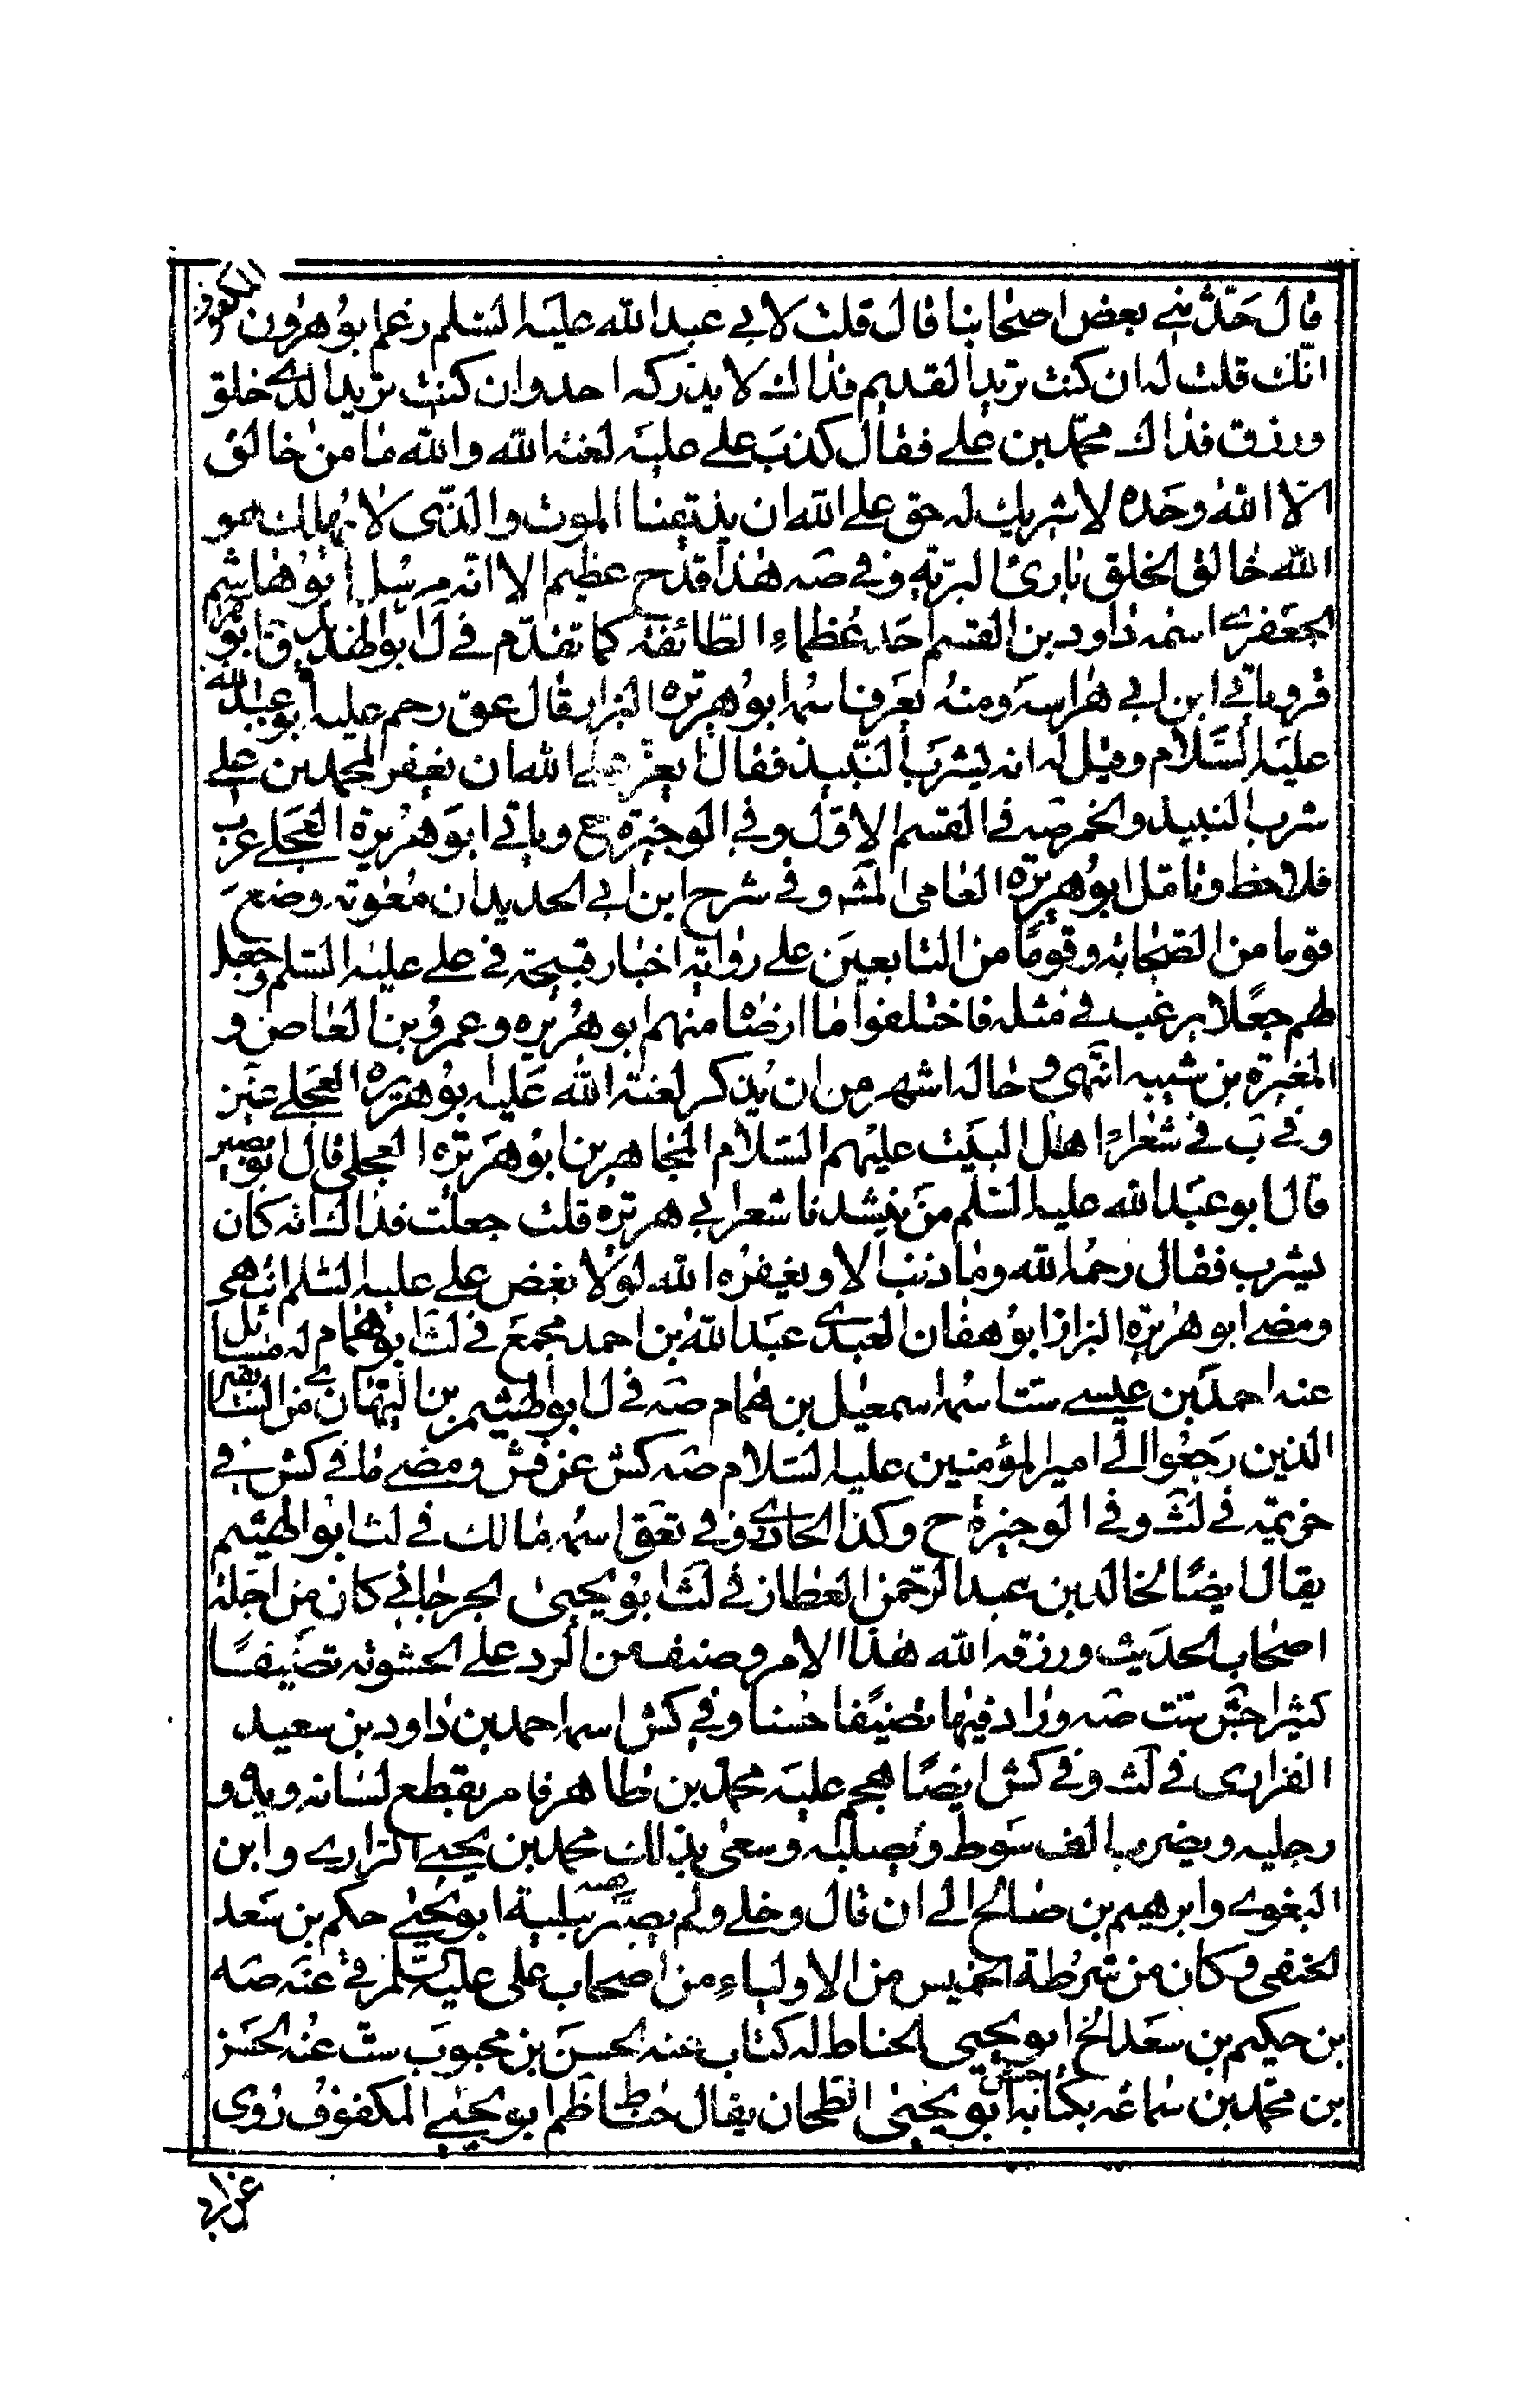 قال حدثني بعض اصحابنا قال قلت لابي عبد الله عليه السلم زعم ابو هرون المكفوف
انك قلت له ان كنت تريد القديم فذاك لا يدركه احد وان كنت تريد الذي خلق
ورزق فذاك محمد بن علي فقال كذب علي عليه لعنه الله والله ما من خالق
الا الله وحده لا شريك له حق على الله ان يذيقنا الموت والذي لا يهلك هو
الله خالق الخلق بارئ البرية وفي صه هذا قدح عظيم الا انه مرسل ابو هاشم
الجعفري اسمه داود بن القسم احد عظماء الطائفة كما تقدم في ل ابو الهذيل ق ابو
ياتي ابن ابي هراسه ومنه يعرف اسمه ابو هريرة البزاز قال عق رحم عليه ابو عبد الله
عليه السلام وقيل له انه يشرب النبيذ فقال يعز على الله ان يغفر لمحمد بن علي
شرب النبيذ والخمر صه في القسم الاول وفي الوجيزة ح وياتي ابو هريرة العجلي عن ب
فلاحظ وتامل ابو هريرة العامي المشه وفي شرح ابن ابي الحديد ان معوية وضع
قوما من الصحابة وقوما من التابعين على رواية اخبار قبيحة في علي عليه السلم وجعل
لهم جعلا يرغب في مثله فاختلفوا ما ارضاه منهم ابو هريره وعمرو بن العاص و
المغيرة بن شيبه انتهى وحاله اشهر من ان يذكر لعنة الله عليه ابو هريرة العجلي غير
وفي ب في شعراء اهل البيت عليهم السلام المجاهرين ابو هريرة العجلي قال ابو بصير
قال ابو عبد الله عليه السلم من ينشدنا شعر ابي هريرة قلت جعلت فداك انه كان
يشرب فقال رحمه الله وما ذنب الا ويغفره الله لولا بغض علي عليه السلم انتهى
ومضى ابو هريرة البزاز ابو هفان العبدي عبد الله بن احمد مجمع في لث ابو همام له مسائل
عنه احمد بن عيسى ست اسمه اسمعيل بن همام صه في ل ابو الهيثم بن التيهان ي من السابقين
الذين رجعوا الى امير المؤمنين عليه السلام صه كش عن فش ومضى ما في كش في
خزيمة في لث وفي الوجيزة ح وكذا الحاوي وفي تعق اسمه مالك في لث ابو الهيثم
يقال ايضا لخالد بن عبد الرحمن العطار في لث ابو يحيى الجرجاني كان من اجلة
اصحاب الحديث ورزقه الله هذا الامر وصنف من الرد على الحشوية تصنيفا
كثيرا جش ست صه وزاد فيها تصنيفا حسنا وفي كش اسمه احمد بن داود بن سعيد
الفزاري في لث وفي كش ايضا هجم عليه محمد بن طاهر فامر بقطع لسانه ويديه و
رجليه ويضرب الف سوط وبصلبه وسعى بذلك محمد بن يحيى الرازي وابن
البغوي وابرهيم بن صالح الى ان قال وخلي ولم يصبه ببلية ابو يحيى حكم بن سعد
الحنفي وكان من شرطة الخميس من الاولياء من اصحاب علي عليه السلم في عنه صه
بن حكيم بن سعد الخ ابو يحيى الحناط له كتاب عنه الحسن بن محبوب ست عنه الحسن
بن محمد بن سماعه بكتابه جش ابو يحيى الطحان يقال حناط ظم ابو يحيى المكفوف روى
عن ابي